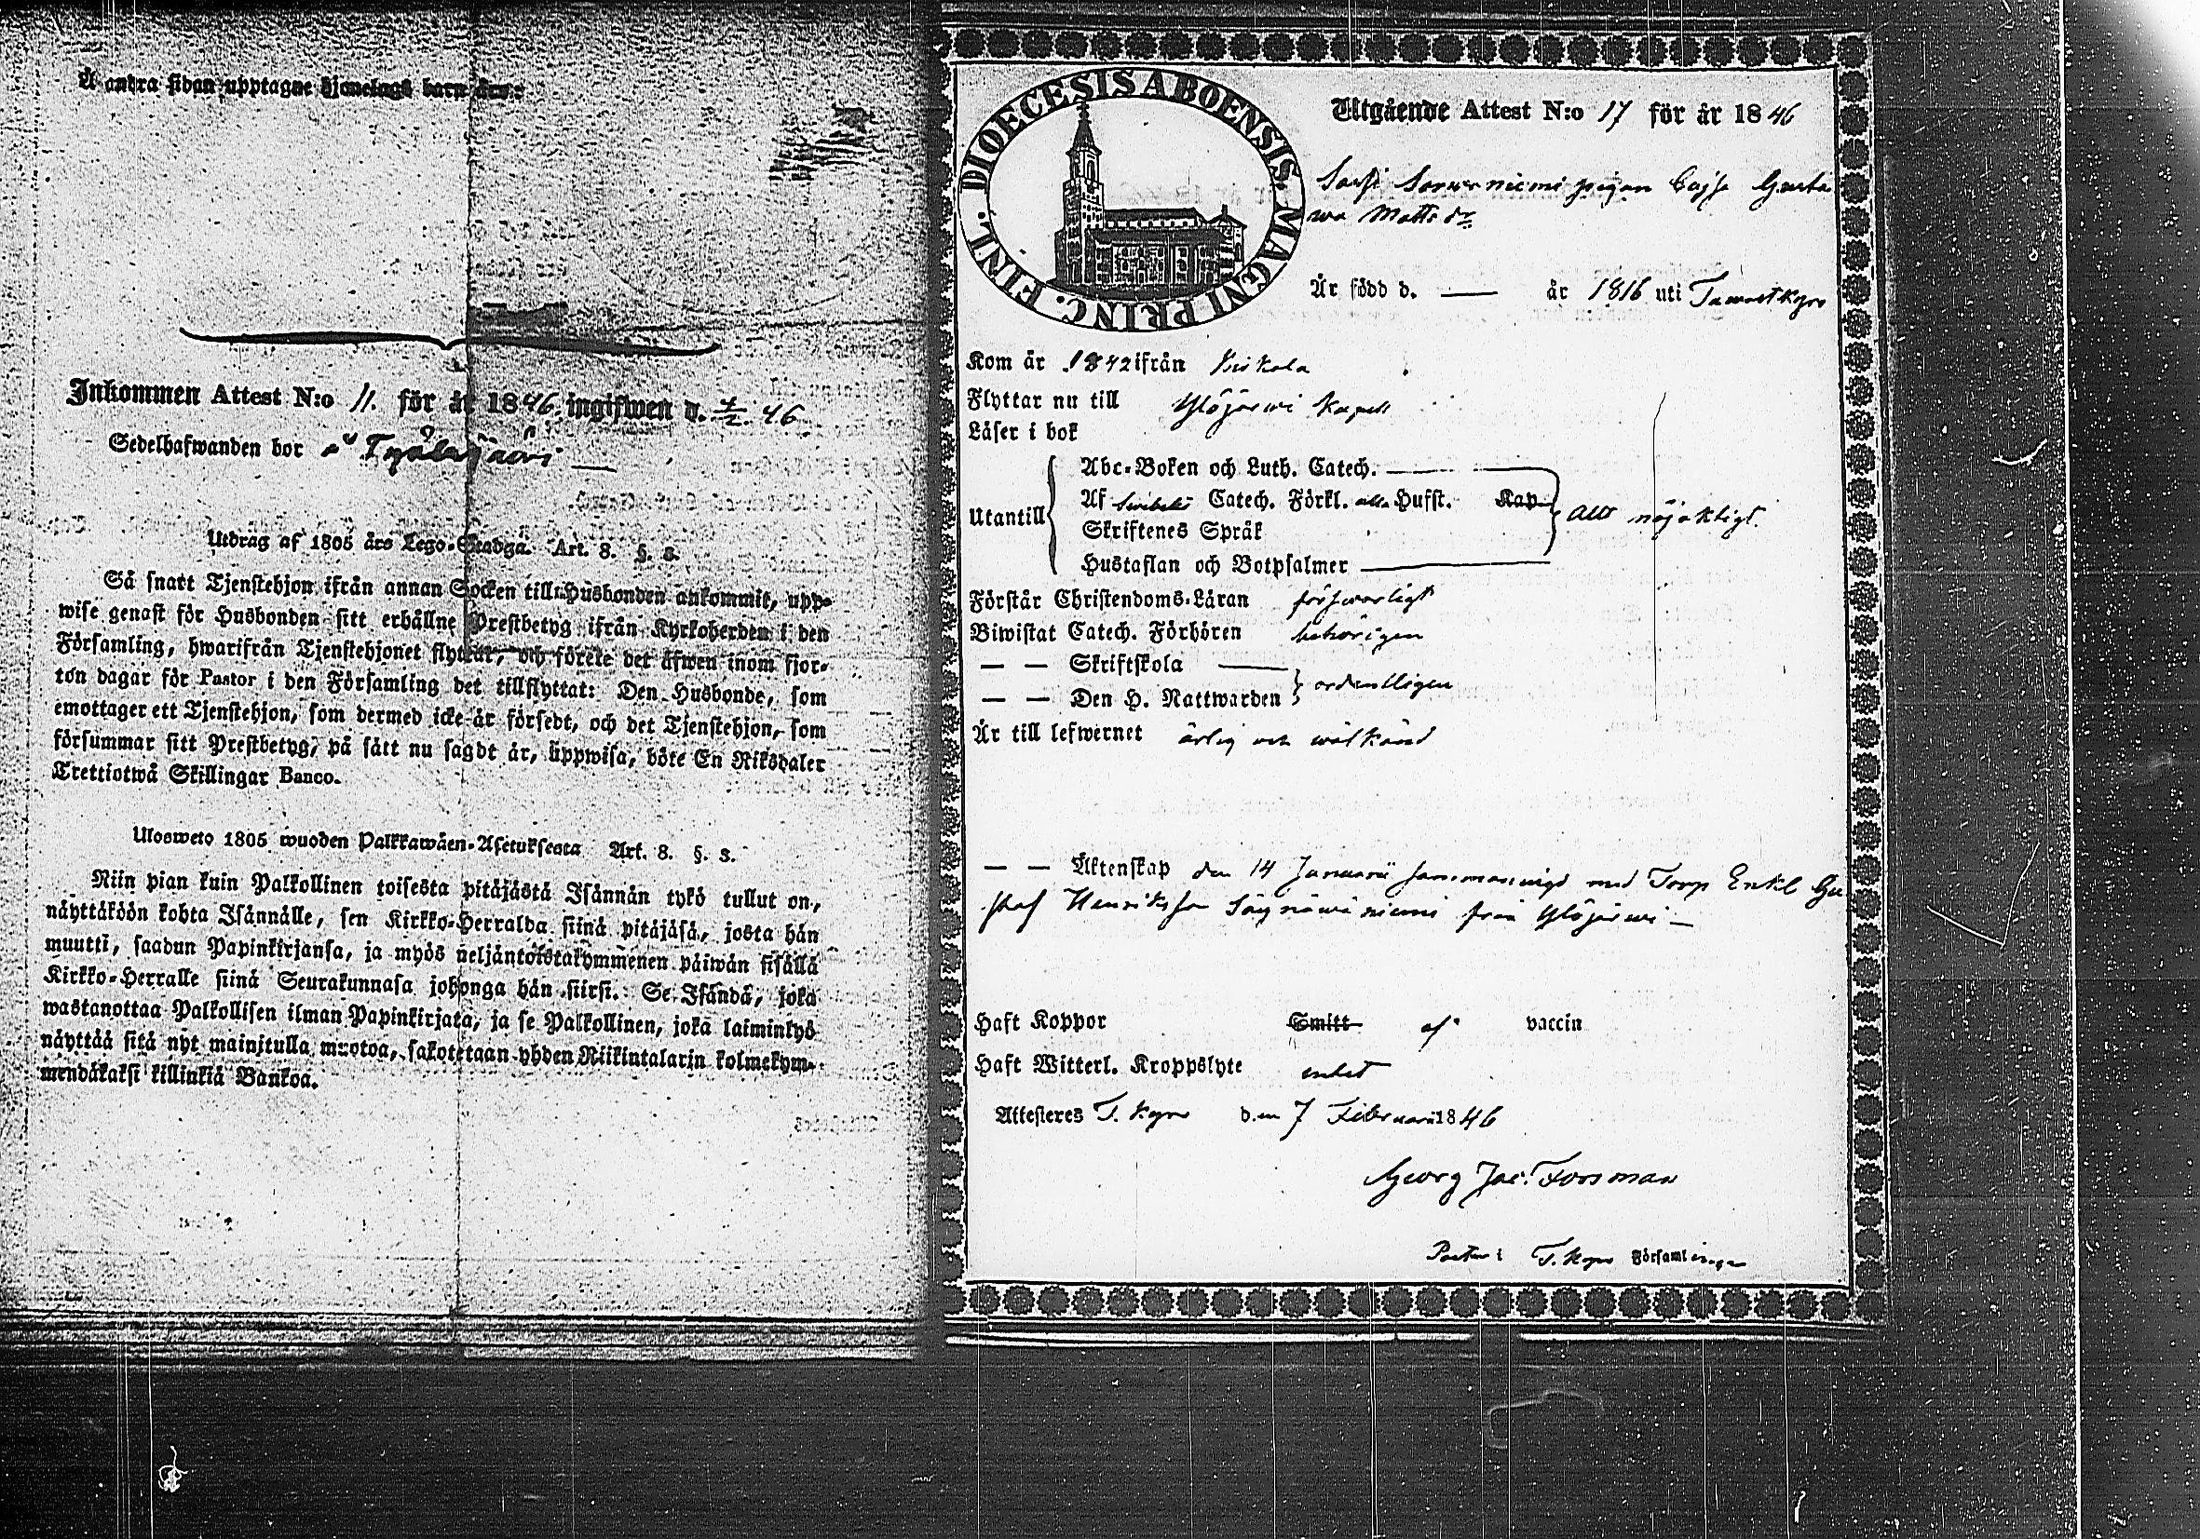 Å andra sidan upptagne hjonelags barn äro:
Inkommen Attest N:o 11. för år 1846. ingifwen d. 46
Sedelhafwanden bor
Utdrag af 1805 års Lego-Stadga. Art. 8. §. 3.
Så snart Tjenstehjon ifrån annan Socken till Husbonden ankommit, upp-
wise genast för Husbonden sitt erhållne Prestbetyg ifrån Kyrkoherden i den
Församling, hwarifrån Tjenstehjonet flyttat, och förete det äfwen inom fjor-
ton dagar för Pastor i den Församling det tillflyttat: Den Husbonde, som
emottager ett Tjenstehjon, som dermed icke är försedt, och det Tjenstehjon, som
försummar sitt Prestbetyg, på sätt nu sagdt är, uppwisa, böte En Riksdaler
Trettiotwå Skillingar Banco.
Ulosweto 1805 wuoden Palkkawäen-Asetuksesta Art. 8. §. 3.
Niin pian kuin Palkollinen toisesta pitäjästä Isännän tykö tullut on,
näyttäköön kohta Isännälle, sen Kirkko-Herralda siinä pitäjäsä, josta hän
muutti, saadun Papinkirjansa, ja myös neljäntoistakymmenen päiwän sisällä
Kirkko-Herralle siinä Seurakunnasa johonga hän siirsi. Se Isändä, joka
wastanottaa Palkollisen ilman Papinkirjata, ja se Palkollinen, joka laiminlyö
näyttää sitä nyt mainitulla muotoa, sakotetaan yhden Riikintalarin kolmekym-
mendäkaksi killinkiä Bankoa.
DIOECESIS ABOENSIS. MAGNI PRINC. FINL.
Utgående Attest N:o 17 för år 1846
Sarsi pigan Cajsa Gusta
wa Mattsdr
Är född d. — år 1816 uti Tawastkyro
Kom år 1842 ifrån
Flyttar nu till Ylöjärwi Kapell
Läser i bok
Utantill
Abc-Boken och Luth. Catech.
Af Swebelii Catech. Förkl. alla Hufst. Kap
Skriftenes Språk
Hustaflan och Botpsalmer
allt nöjaktigt.
Förstår Christendoms-Läran försvarligt
Biwistat Catech. Förhören behörigen
— — Skriftskola
— — Den H. Nattwarden ordentligen
Är till lefwernet ärlig och wälkänd
— — Äktenskap den 14 Januarii sammanwigd med Torp Enkl Gu
staf Henriksson från Ylöjärwi —
Haft Koppor Smitt af vaccin
Haft Witterl. Kroppslyte intet
Attesteres T. Kyro den 7 Februari 1846
Georg Jac. Forsman
Pastor i T. Kyro Församlingar